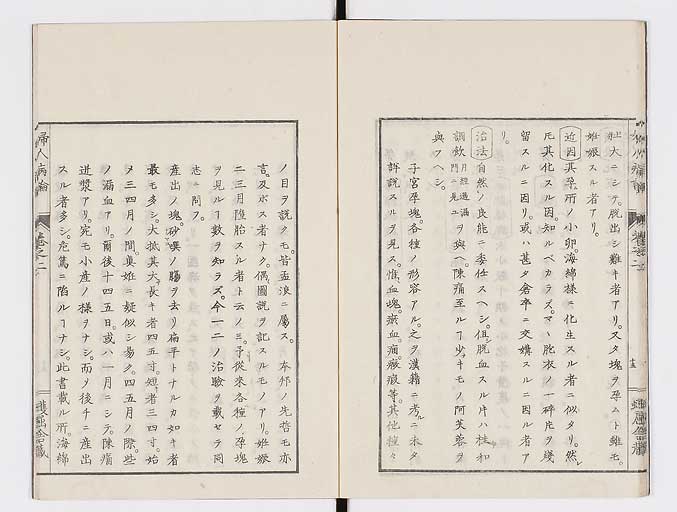 壯大ニシテ。脱出シ難キ者アリ。又タ塊ヲ孕ムト雖モ。
姙娠スル者アリ。
近因 其孕所ノ小卵。海綿樣ニ化生スル者ニ似タリ。然
圧其化スル因。知ルベカラズ。マヽ胞衣ノ一碎片ヲ殘
留スルニ因リ。或ハ甚タ倉卒ニ交媾スルニ因ル者ア
リ。
治法 自然ノ良能ニ委任スヘシ。但シ脱血スル片ハ桂和
調飲 月經過漏門ニ見ユ ヲ與ヘ。陳痛至ルヿ少キモノ阿芙蓉ヲ
與フヘシ。
子宮孕塊。各種ノ形容アル。之ヲ漢籍ニ考ルニ未タ
詳説スルヲ見ス。惟血塊。瘀血。痛。瘕等。其他種々
ノ目ヲ説クモ。皆孟浪ニ屬ス。本邦ノ先哲モ亦
言。及ホス者ナク。偶圖説ヲ記スルモノアリ。姙娠
二三月墮胎スル者ト云ノミ。予從來各種ノ孕塊
ヲ見ルヿ數ヲ知ラズ。今一二ノ治驗ヲ載セテ同
志ニ問フ。
産出ノ塊。砂嚢ノ腸ヲ去リ。扁平トナルカ如キ者
最モ多シ。大抵其大サ長キ者四五寸。短者三四寸。始
タ三四月ノ間。眞姙ニ疑似シ易ク。四五月ノ際。些
ノ漏血アリ。爾後十四五日。或ハ一月ニシテ。陳痛
迸漿アリ。宛モ小産ノ樣ヲナシ。而ノ後チニ産出
スル者多シ。危篤ニ陷ルヿナシ。此書載ル所。海綿
婦人病論
卷之二